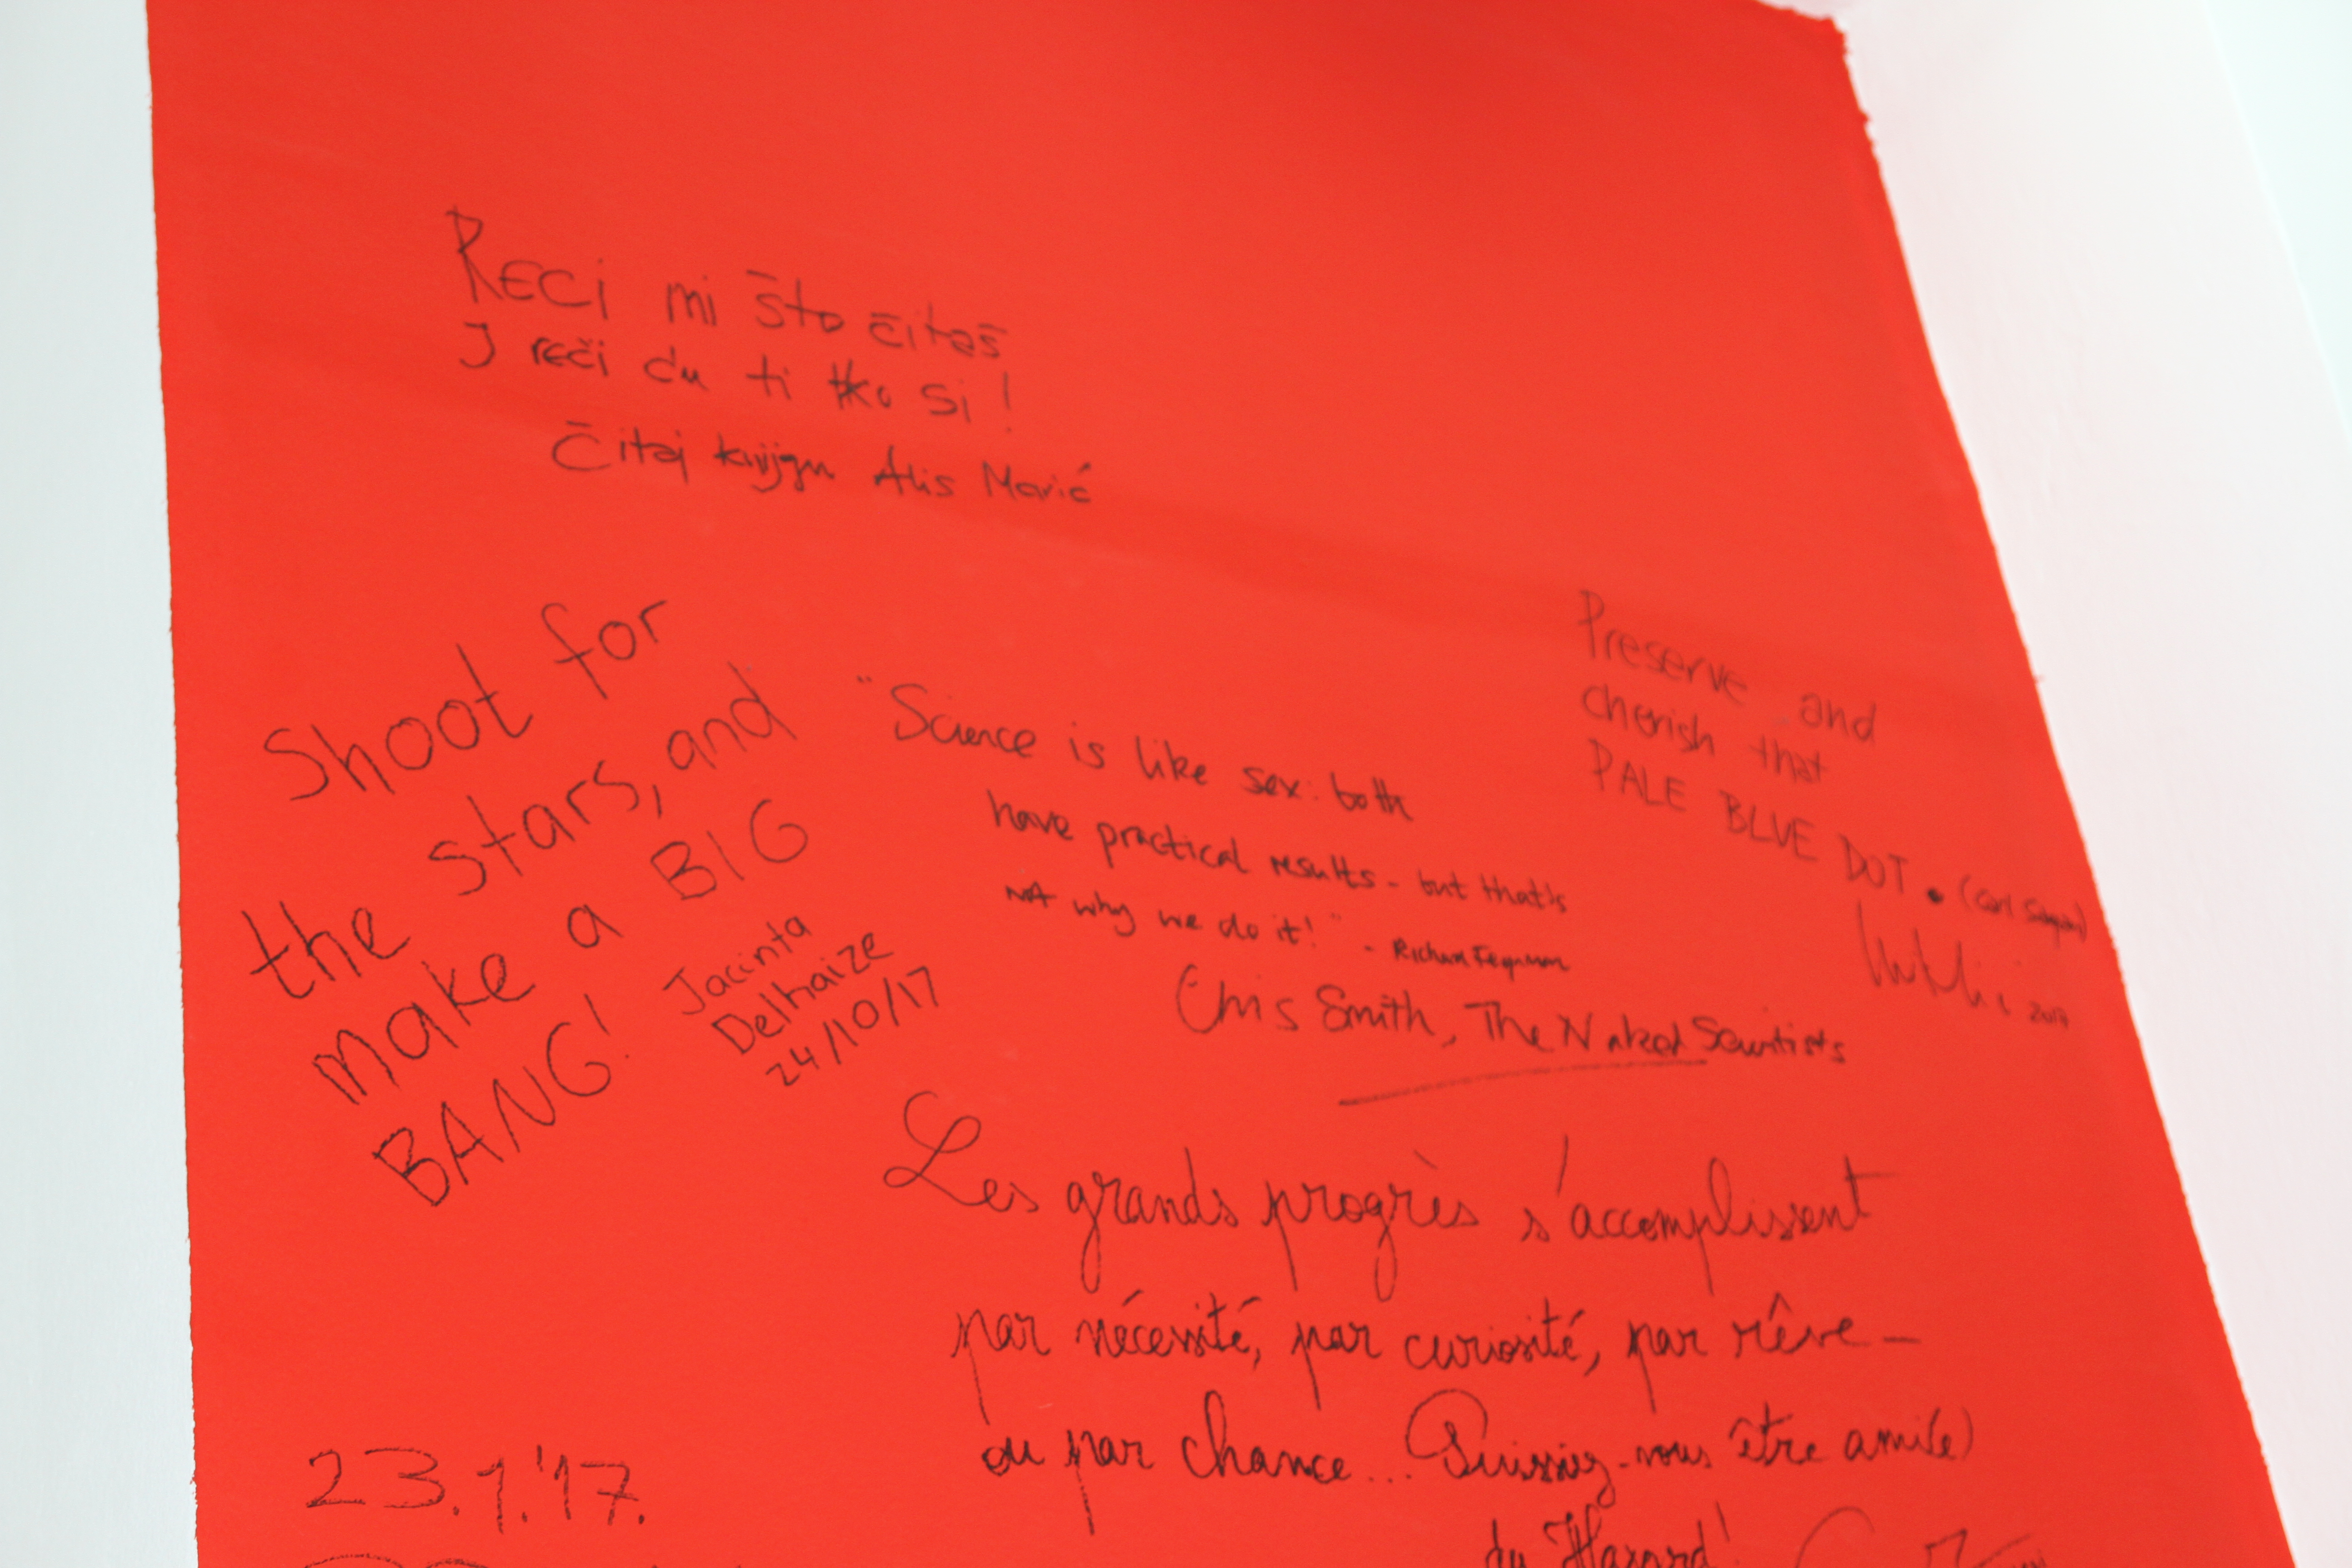 Reci mi što čitaš
I reči ću ti tko si!
Čitaj knjigu Alis Marić
Shoot for
the stars, and
make a BIG
BANG!
Jacinta
Delhaize
24/10/17
"Science is like sex: both
have practical results - but that's
not why we do it!" - Richard Feynman
Chris Smith, The Naked Scientists
Preserve and
cherish that
PALE BLUE DOT . (Carl Sagan)
2017
Les grands progrès s'accomplissent
par nécessité, par curiosité, par rêve -
ou par chance... Puissiez-vous être ami(e)
du Hasard!
23.1.'17.